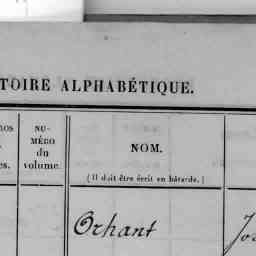 TOIRE ALPHABÉTIQUE.
NU-
MÉRO
du
volume.
NOM.
(Il doit être écrit en bâtarde.)
Orhant